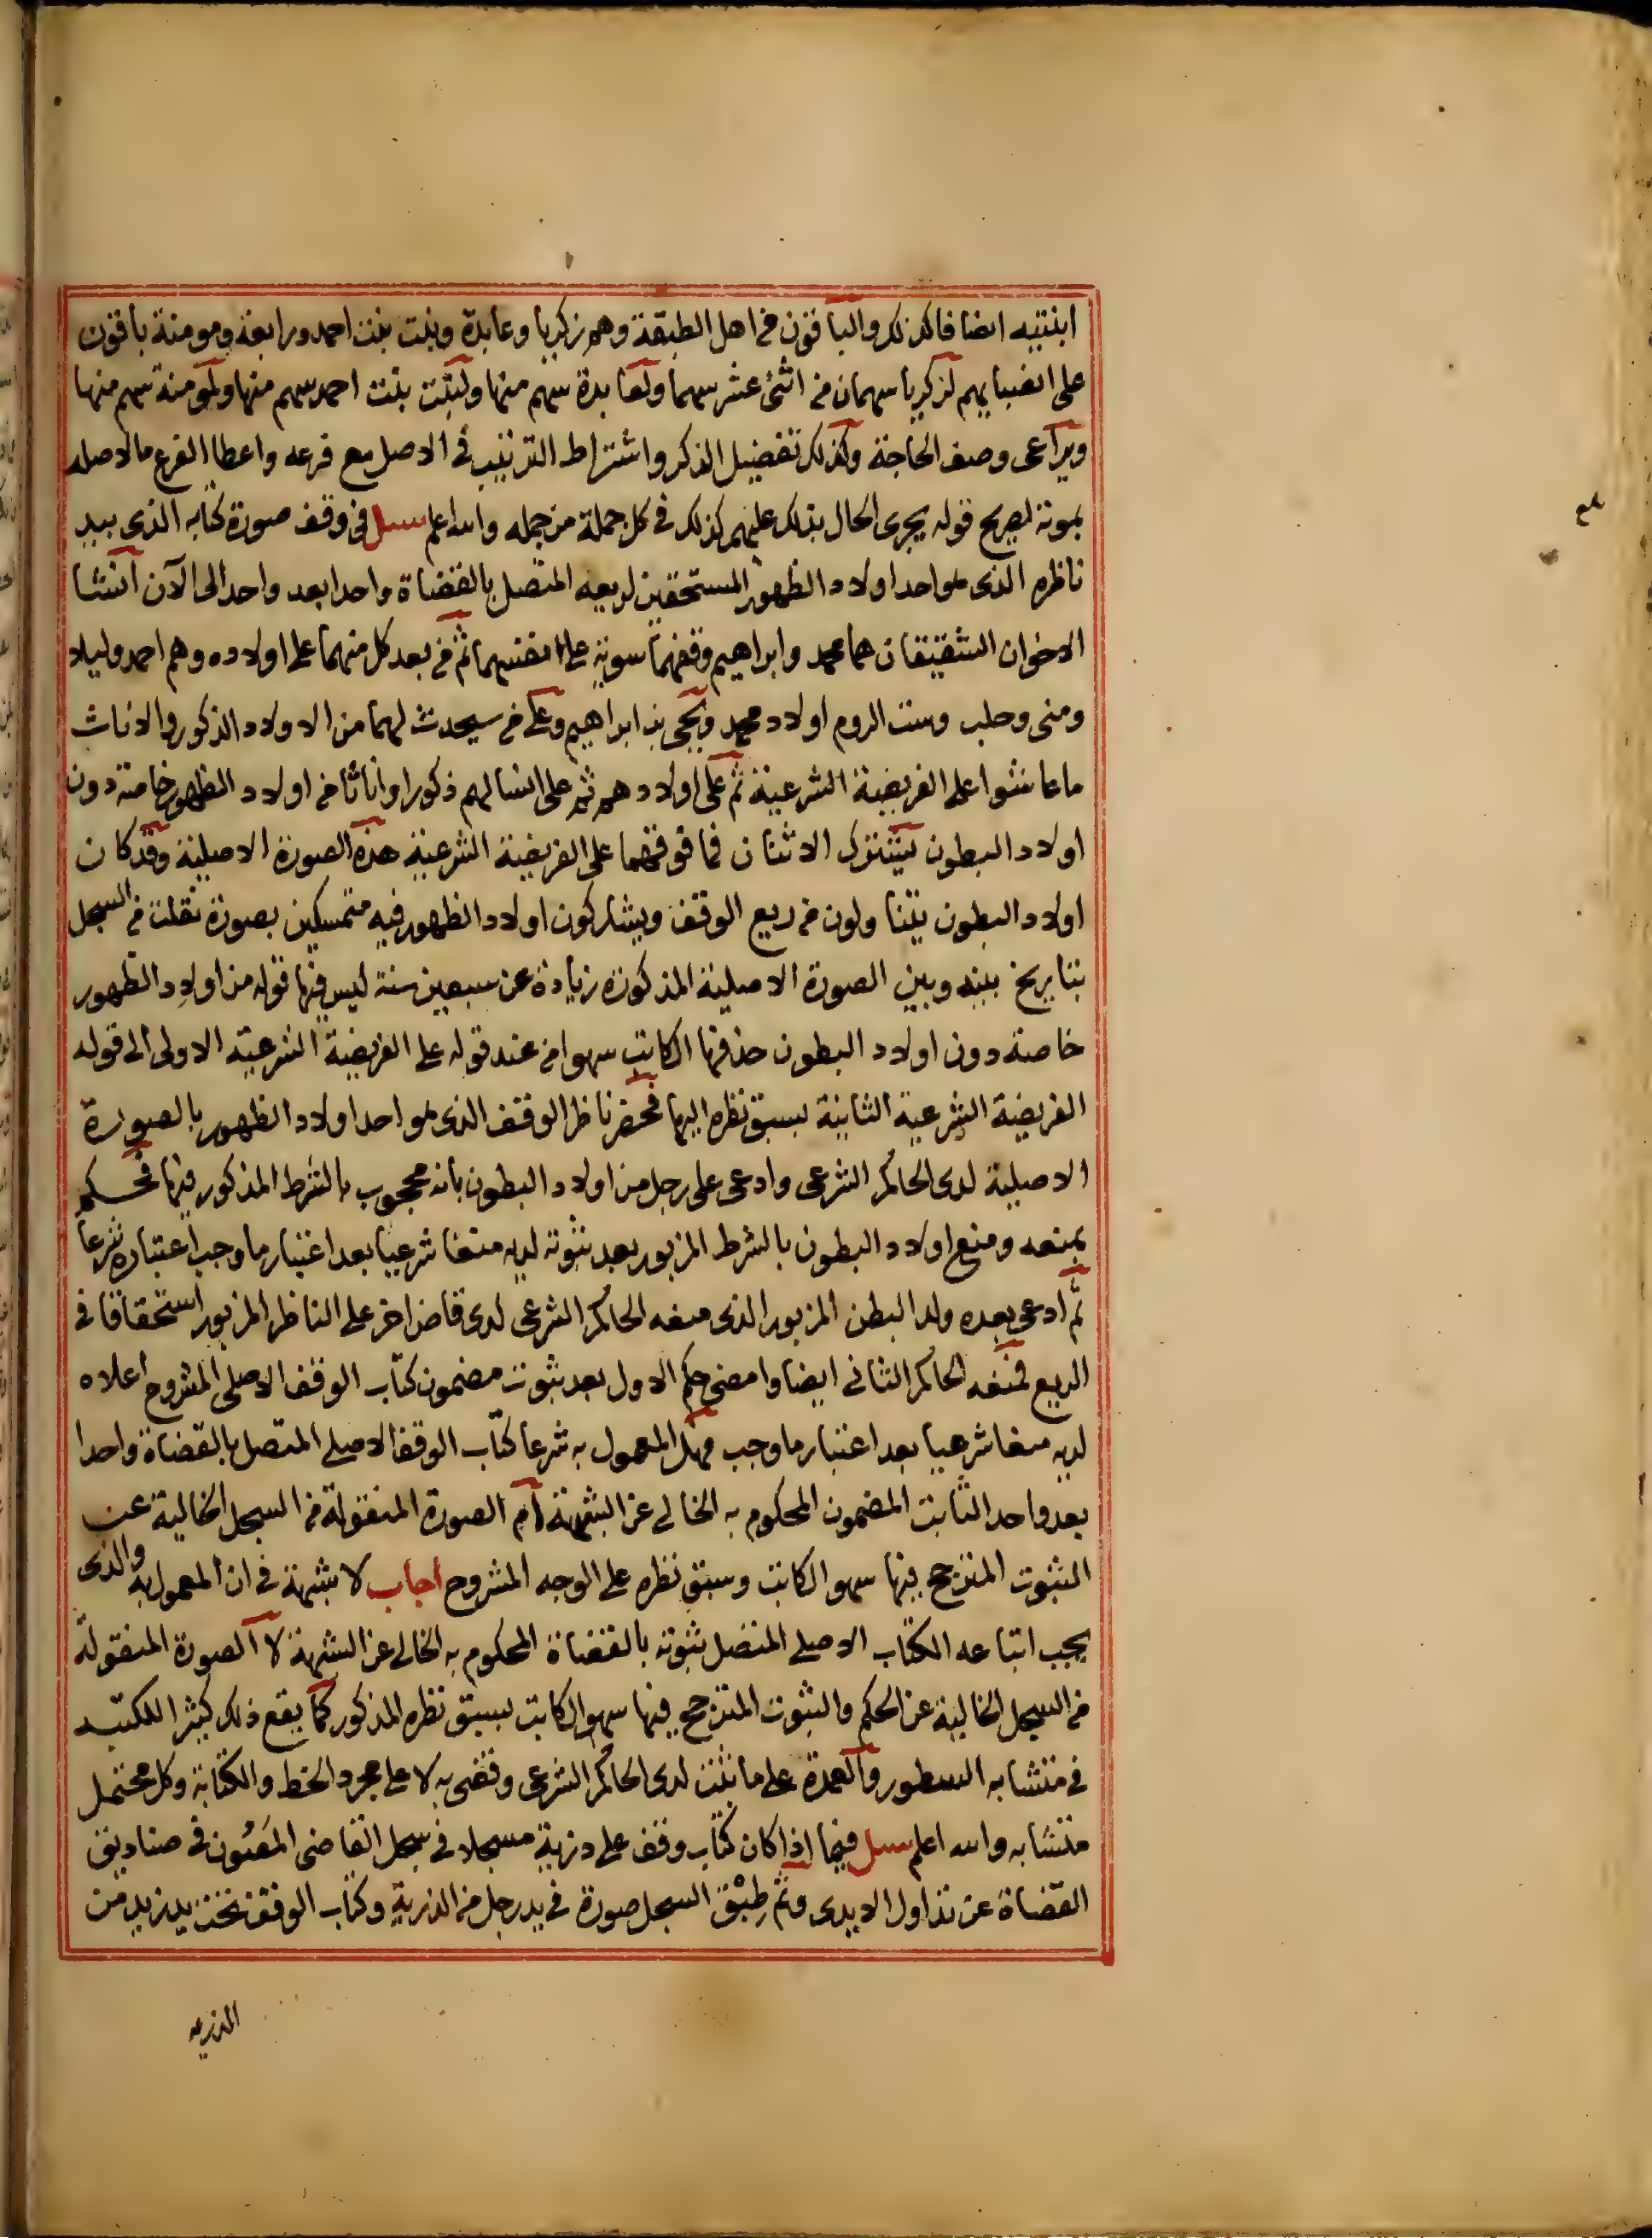 ابنتيه ايضا فالكذلك والباقون من اهل الطبقة وهم زكريا وعابدة وبنت بنت احمد ورابعة ومومنة باقون
على انصبايهم لزكريا سهمان من اثنى عشر سهما ولعابدة سهم منها ولبنت بنت احمد سهم منها ولمومنة سهم منها
ويراعى وصف الحاجة وكذلك تفضيل الذكر واشتراط الترتيب في الاصل مع فرعه واعطا الفرع ما لاصله
بموته لصريح قوله يجرى الحال بذلك عليهم كذلك في كل جملة من جمله والله اعلم سىل في وقف صورة كتابه الذى بيد
ناظره الذى هو احد اولاد الظهور المستحقين لريعه المتصل بالقضاة واحدا بعد واحد الى الآن انشا
الاخوان الشقيقان هما محمد وابراهيم وقفهما سوية على انفسهما ثم من بعد كل منهما على اولاده وهم احمد وليلا
ومنى وحلب وست الروم اولاد محمد ويحيى بن ابراهيم وعلى من سيحدث لهما من الاولاد الذكور والاناث
ما عاشوا على الفريضة الشرعية ثم على اولادهم ثم على انسالهم ذكورا واناثا من اولاد الظهور خاصة دون
اولاد البطون يشترك الاثنان فما فوقهما على الفريضة الشرعية هذه الصورة الاصلية وقد كان
اولاد البطون يتناولون من ريع الوقف ويشاركون اولاد الظهور فيه متمسكين بصورة نقلت من السجل
بتاريخ بينه وبين الصورة الاصلية المذكورة زيادة عن سبعين سنة ليس فيها قوله من اولاد الظهور
خاصة دون اولاد البطون حذفها الكاتب سهوا من عند قوله على الفريضة الشرعية الاولى الى قوله
الفريضة الشرعية الثانية لسبق نظره اليها فحضر ناظر الوقف الذى هو احد اولاد الظهور بالصورة
الاصلية لدى الحاكم الشرعى وادعى على رجل من اولاد البطون بانه محجوب بالشرط المذكور فيها فحكم
بمنعه ومنع اولاد البطون بالشرط المزبور بعد ثبوته لديه منعا شرعيا بعد اعتبار ما وجب اعتباره شرعا
ثم ادعى بعده ولد البطن المزبور الذى منعه الحاكم الشرعى لدى قاض اخر على الناظر المزبور استحقاقا في
الريع فمنعه الحاكم الثانى ايضا وامضى حكم الاول بعد ثبوت مضمون كتاب الوقف الاصلى المشروح اعلاه
لديه منعا شرعيا بعد اعتبار ما وجب فهل المعمول به شرعا كتاب الوقف الاصلى المتصل بالقضاة واحدا
بعد واحد الثابت المضمون المحكوم به الخالى عن الشبهة ام الصورة المنقولة من السجل الخالية عن
الثبوت المترجح فيها سهو الكاتب وسبق نظره على الوجه المشروح اجاب لا شبهة في ان المعمول به والذى
يجب اتباعه الكتاب الاصلى المتصل ثبوته بالقضاة المحكوم به الخالى عن الشبهة لا الصورة المنقولة
من السجل الخالية عن الحكم والثبوت المترجح فيها سهو الكاتب بسبق نظره المذكور كما يقع ذلك كثيرا للكتبة
في متشابه السطور والعمدة على ما ثبت لدى الحاكم الشرعى وقضى به لا على مجرد الخط والكتابة وكل محتمل
متشابه والله اعلم سىل فيما اذا كان كتاب وقف على ذرية مسجلا في سجل القاضى المصون في صناديق
القضاة عن تداول الايدى وثم طبق السجل صورة في يد رجل من الذرية وكتاب الوقف تحت يد زيد من
الذرية